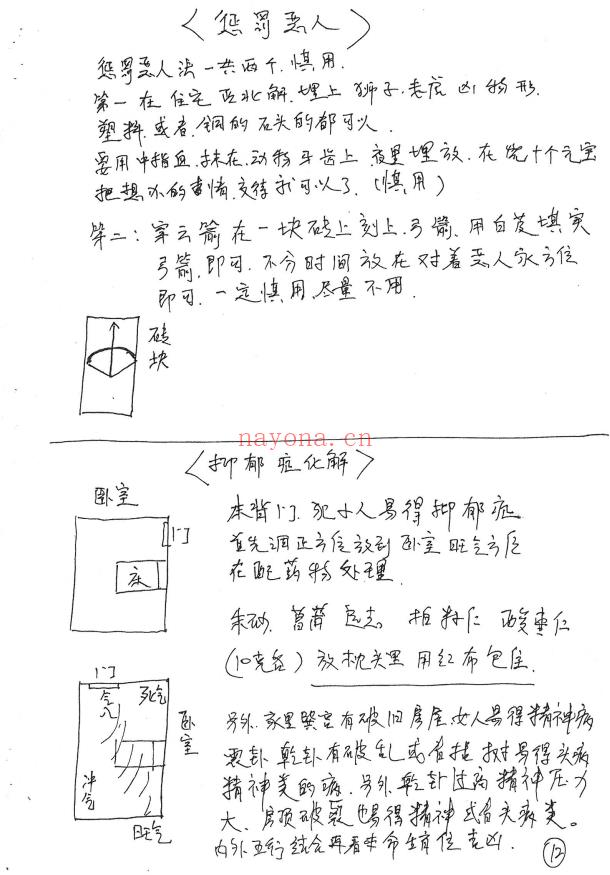 〈惩罚恶人〉
惩罚恶人法一共两个.慎用.
第一在住宅西北解.埋上狮子.老虎凶物形.
塑料.或者.铜的石头的都可以.
要用中指血.抹在.动物牙齿上 夜里埋放.在烧十个元宝
把想办的事情.交待就可以了.(慎用)
第二:穿云箭在一块砖上刻上.弓箭.用白芨填实
弓箭.即可.不分时间放在对着恶人家方位
即可.一定慎用.尽量不用.
砖块
nayona.cn
〈抑郁症化解〉
卧室
门
床
床背门.犯小人易得抑郁症
首先调正方位放到卧室旺气方位
在配药物处理.
朱砂.菖蒲 远志 柏籽仁 酸枣仁
(10克各)放枕头里用红布包住.
门
气入
死气
卧室
冲气
旺气
另外.家里巽宫有破旧房屋女人易得精神病
震卦.乾卦有破乱或有挂树易得头病
精神类的病.另外.乾卦过高精神压力
大.房顶破裂也易得精神或有头病类。
内外五行结合再看本命生肖位吉凶.
12